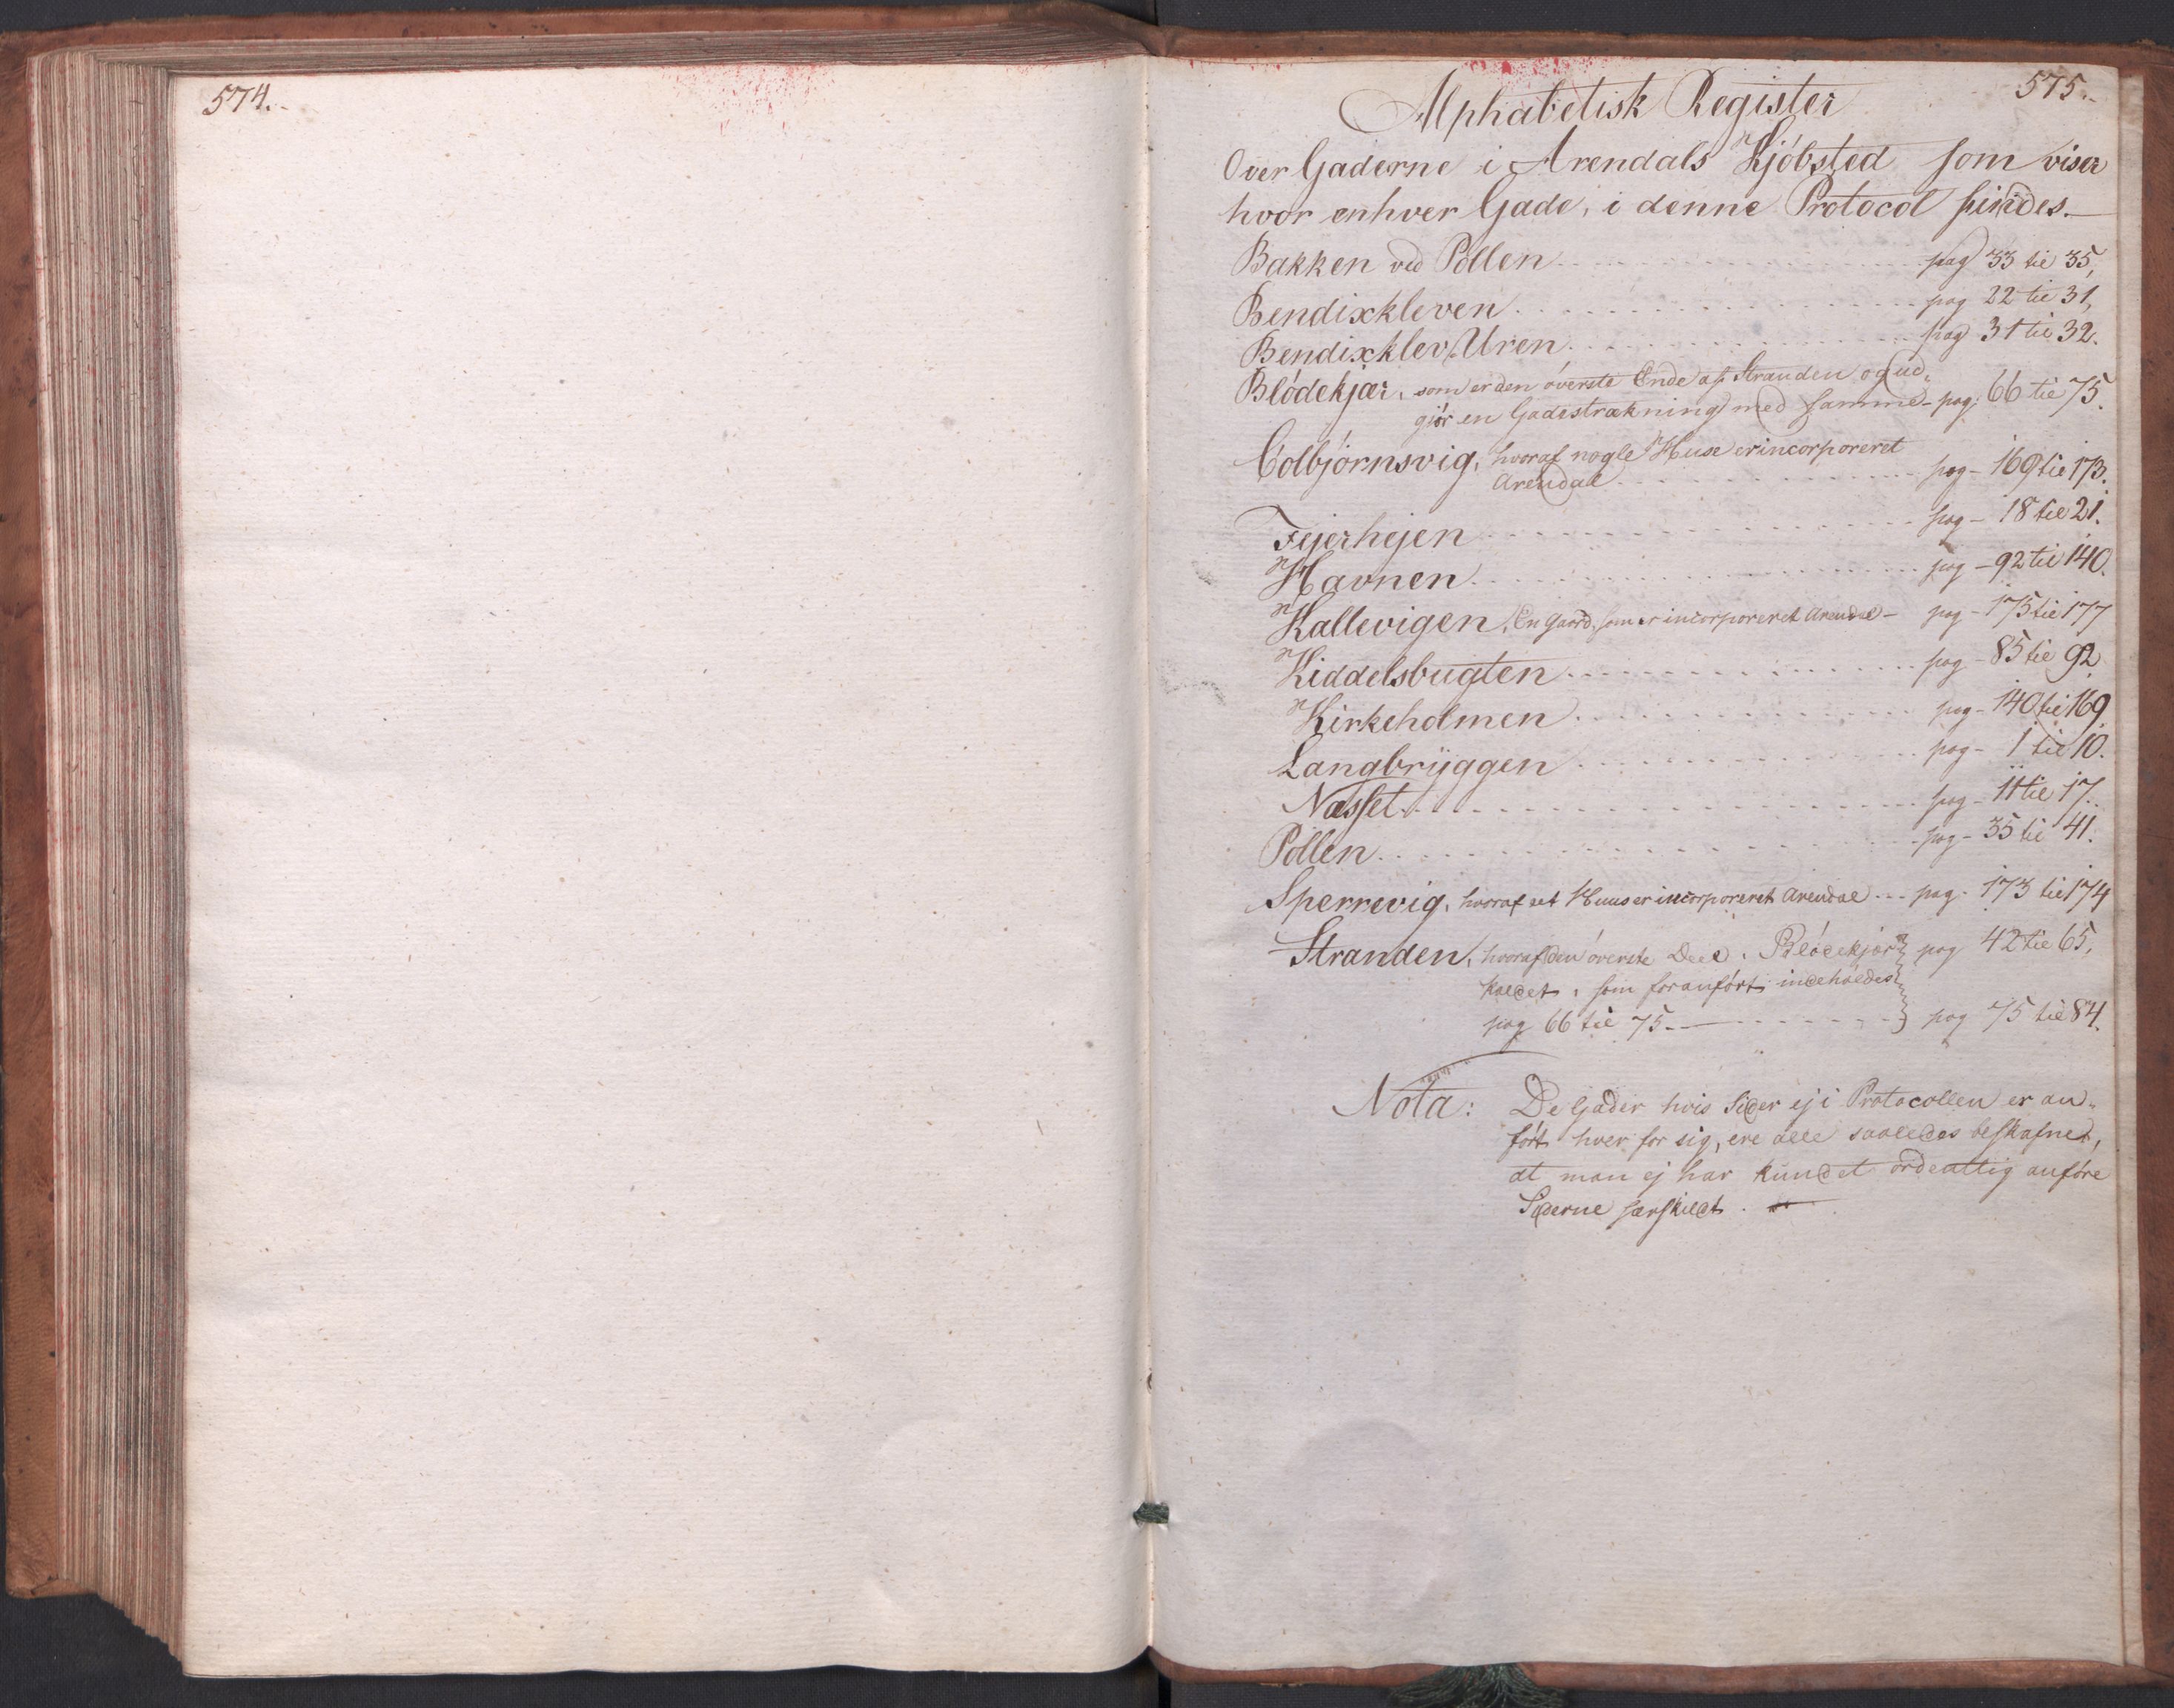 574.
575.
Alphabetisk Register
Over Gaderne i Arendals Kjöbsted som viser
hvor enhver Gade, i denne Protocol findes.
Bakken ved Pollen pag 33 til 35,
Bendixkleven pag 22 til 31,
Bendixklev Uren pag 31 til 32.
Blödekjær, som er den överste Ende af Stranden og ud„
giör en Gadestrækning med samme - pag: 66 til 75.
Colbjörnsvig, hvoraf nogle Huse er incorporeret
Arendal pag - 169 til 173.
Fejerhejen pag - 18 til 21.
Havnen pag - 92 til 140.
Kallevigen, En Gaard, som er incorporeret Arendal - pag - 175 til 177
Kiddelsbugten pag - 85 til 92
Kirkeholmen pag - 140 til 169.
Langbryggen pag - 1 til 10.
Næsset pag - 11 til 17.
Pollen pag - 35 til 41.
Sperrevig, hvoraf et Huus er incorporeret Arendal pag - 173 til 174
Stranden, hvoraf den överste Deel, Blödekjær pag 42 til 65,
kaldet, som foranfört indeholdes
pag 66 til 75 pag 75 til 84.
Nota: De Gader hvis Sider ej i Protocollen er an„
fört hver for sig, ere alle saaledes beskafne,
at man ej har kundet ordentlig anföre
Siderne særskildt.